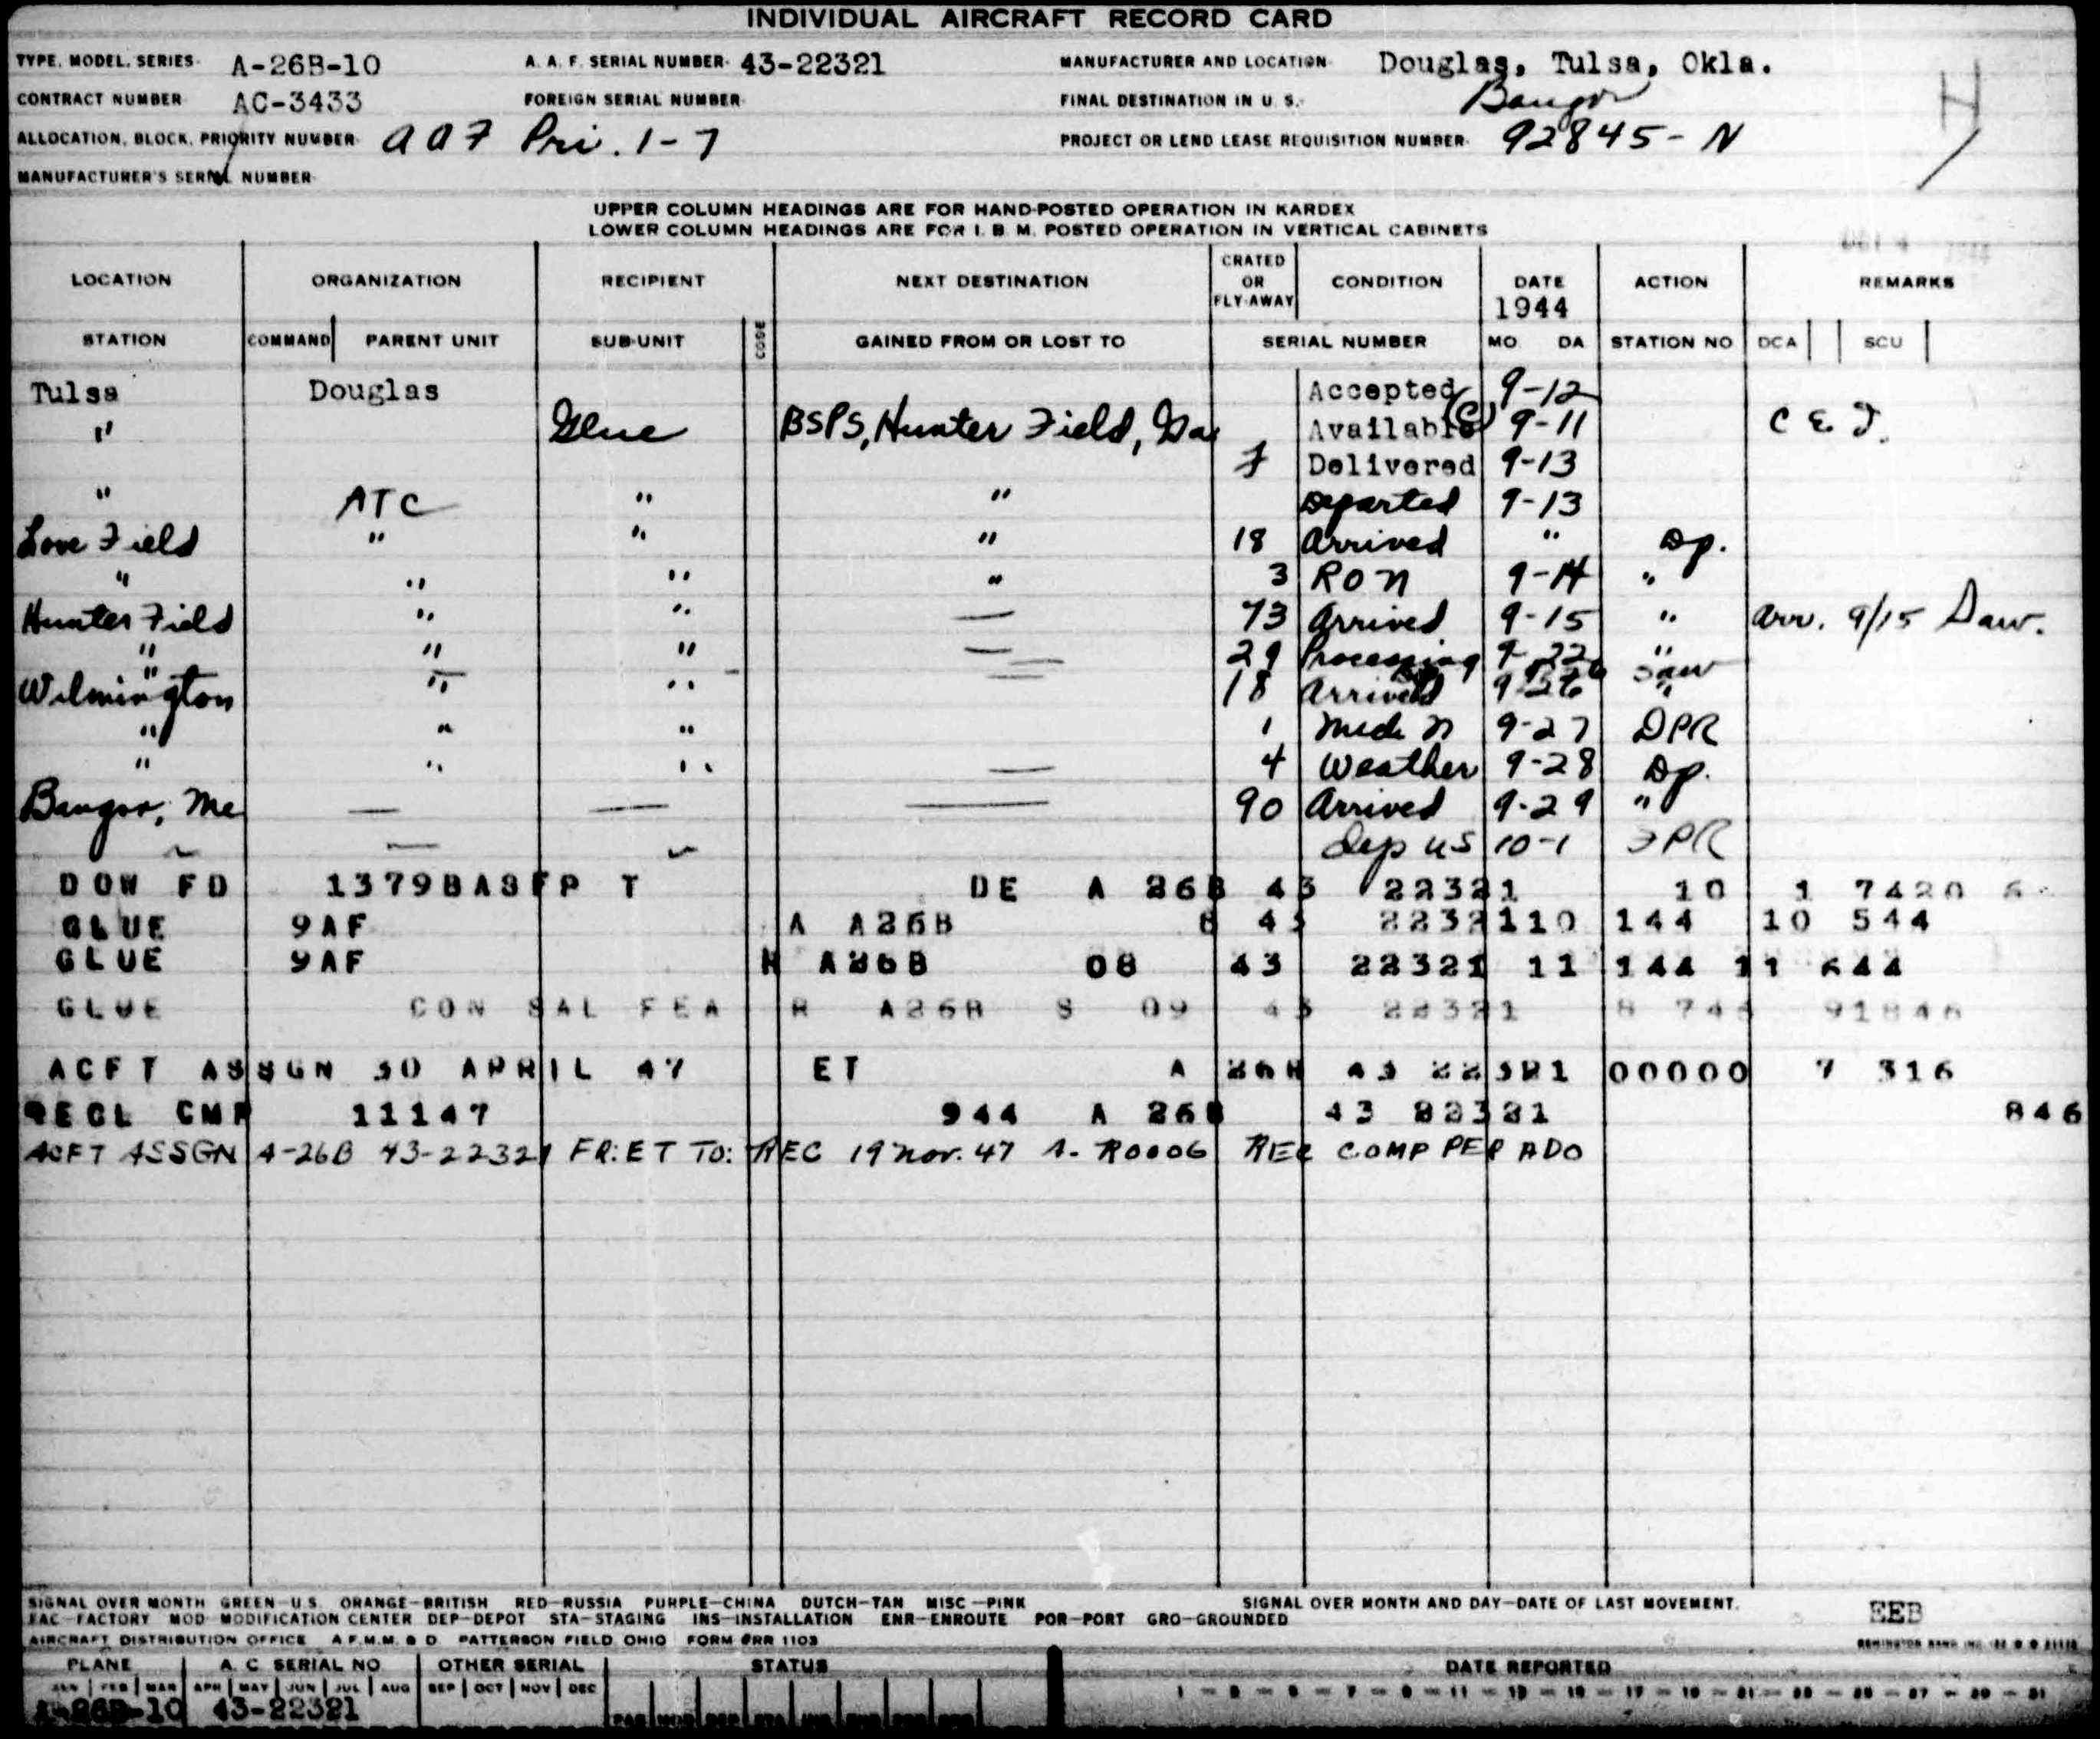 INDIVIDUAL AIRCRAFT RECORD CARD
TYPE, MODEL, SERIES A-26B-10 A. A. F. SERIAL NUMBER 43-22321 MANUFACTURER AND LOCATION Douglas, Tulsa, Okla.
CONTRACT NUMBER AC-3433 FOREIGN SERIAL NUMBER FINAL DESTINATION IN U. S. Bangor
ALLOCATION, BLOCK, PRIORITY NUMBER AAF Pri. 1-7 PROJECT OR LEND LEASE REQUISITION NUMBER 92845-N
MANUFACTURER'S SERIAL NUMBER
UPPER COLUMN HEADINGS ARE FOR HAND-POSTED OPERATION IN KARDEX
LOWER COLUMN HEADINGS ARE FOR I. B. M. POSTED OPERATION IN VERTICAL CABINETS
LOCATION ORGANIZATION RECIPIENT NEXT DESTINATION CRATED OR FLY-AWAY CONDITION DATE 1944 ACTION REMARKS
STATION COMMAND PARENT UNIT SUB-UNIT CODE GAINED FROM OR LOST TO SERIAL NUMBER MO DA STATION NO DCA SCU
Tulsa Douglas Accepted 9-12
" Glue BSPS, Hunter Field, Ga Available (C) 9-11 C E J.
F Delivered 9-13
" ATC " " Departed 9-13
Love Field " " " 18 Arrived " Dp.
" " " " 3 RON 9-14 "
Hunter Field " " — 73 Arrived 9-15 " Arr. 9/15 Saw.
" " " — 29 Processing 9-22 "
Wilmington " " 18 Arrived 9-26 Saw
" " " 1 Mech n 9-27 DPR
" " " — 4 Weather 9-28 Dp.
Bangor, Me — — — 90 Arrived 9-29 "
dep US 10-1 FPR
DOW FD 1379BASFP T DE A 26B 43 22321 10 1 7420 6
GLUE 9AF A A26B 8 43 22321 10 144 10 544
GLUE 9AF N A26B 08 43 22321 11 144 11 644
GLUE CON SAL FEA R A26B S 09 43 22321 8 746 91846
ACFT ASSGN 30 APRIL 47 ET A 26B 43 22321 00000 7 316
RECL CMP 11147 944 A 26B 43 22321 846
ACFT ASSGN A-26B 43-22321 FR: ET TO: REC 19 Nov. 47 A- R0006 REC COMP PER ADO
SIGNAL OVER MONTH GREEN-U.S. ORANGE-BRITISH RED-RUSSIA PURPLE-CHINA DUTCH-TAN MISC-PINK SIGNAL OVER MONTH AND DAY-DATE OF LAST MOVEMENT.
FAC-FACTORY MOD-MODIFICATION CENTER DEP-DEPOT STA-STAGING INS-INSTALLATION ENR-ENROUTE POR-PORT GRO-GROUNDED EEB
AIRCRAFT DISTRIBUTION OFFICE A.F.M.M. & D. PATTERSON FIELD, OHIO FORM PRR 1103
PLANE A. C. SERIAL NO OTHER SERIAL STATUS DATE REPORTED
JAN FEB MAR APR MAY JUN JUL AUG SEP OCT NOV DEC
A-26B-10 43-22321